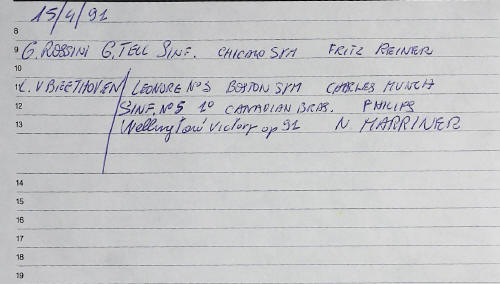 15/4/91
8
9 G. ROSSINI G. TELL SINF. CHICAGO SYM FRITZ REINER
10
11 L. V BEETHOVEN LEONORE Nº 3 BOSTON SYM CHARLES MUNCH
12 SINF. Nº 5 1º CANADIAN BRAS. PHILIPS
13 Wellington' Victory op 91 N. MARRINER
14
15
16
17
18
19